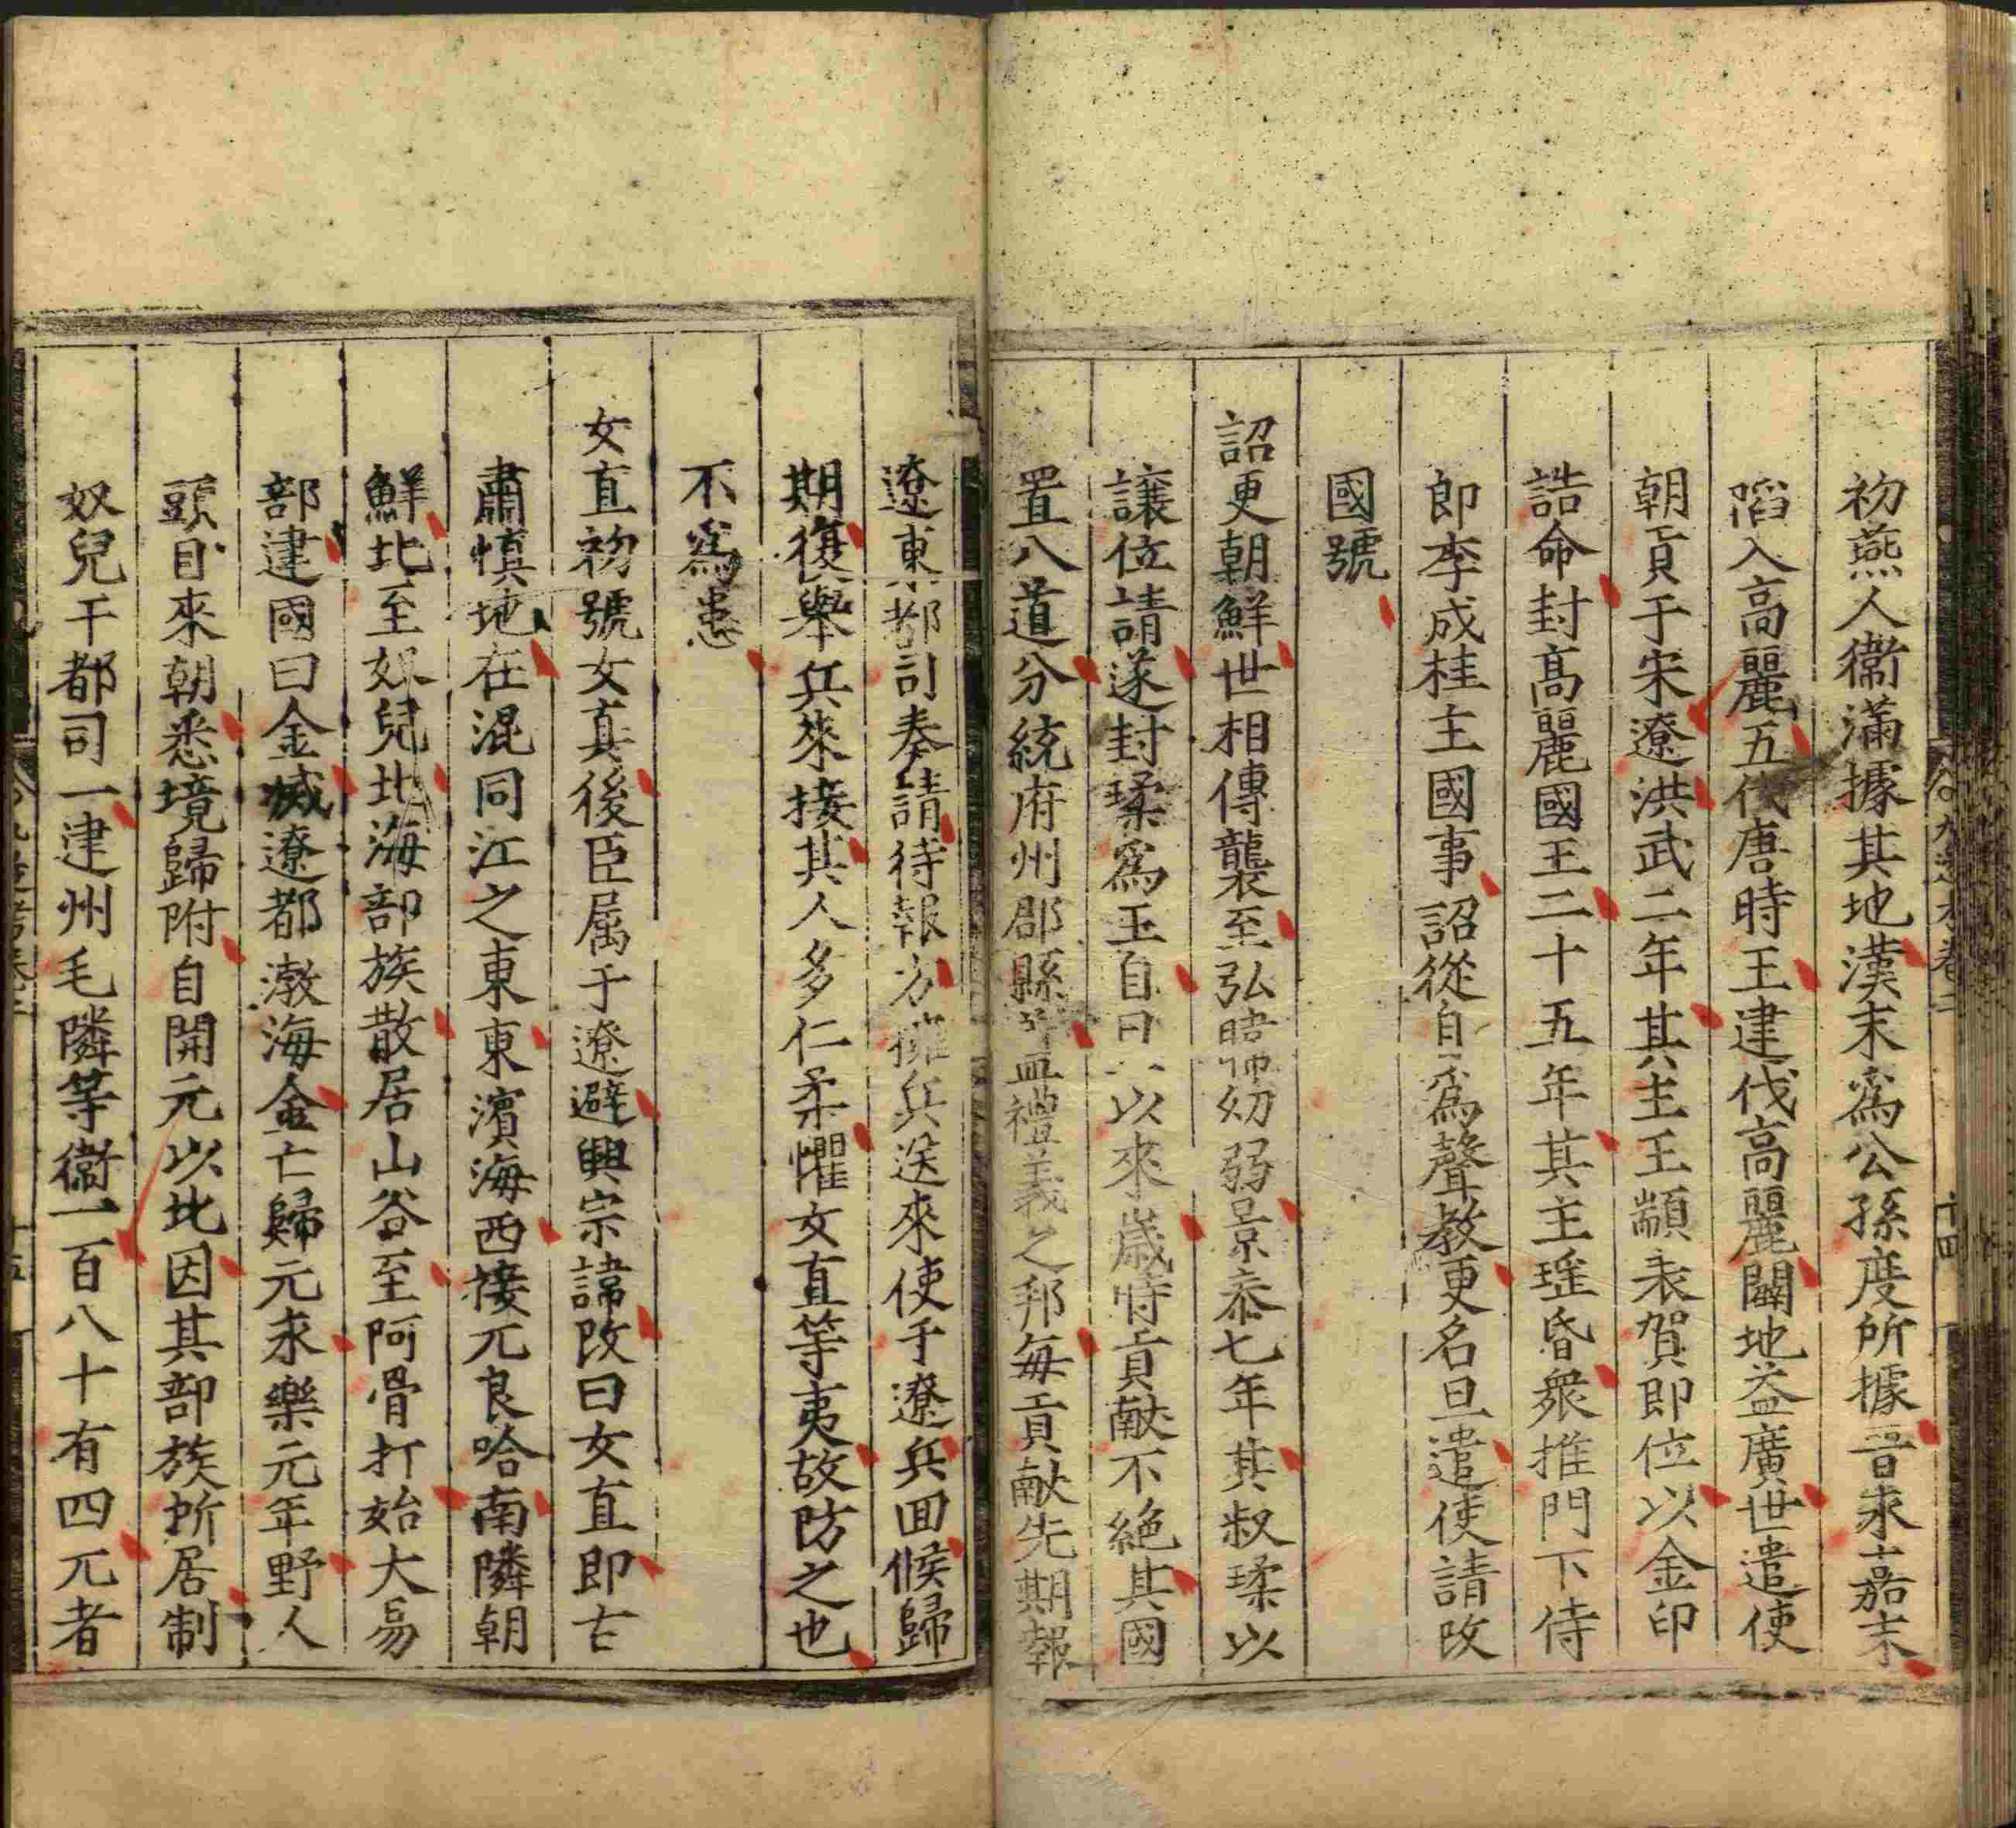 初燕人衛滿據其地漢末爲公孫度所據晋永嘉末
䧟入高麗五代唐時王建伐高麗闢地益廣世遣使
朝貢于宋遼洪武二年其主王顓表賀即位以金印
誥命封高麗國王二十五年其主瑤昏衆推門下侍
郎李成桂主國事詔從自爲聲教更名旦遣使請改
國號
詔更朝鮮世相傳襲至弘暐幼弱景泰七年其叔瑈以
讓位請遂封瑈爲王自以來歳時貢献不絶其國
置八道分統府州郡縣盖禮義之邦毎貢献先期報
遼東都司奏請待報方擁兵送來使于遼兵囬候歸
期復舉兵來接其人多仁柔懼女直等夷故防之也
不爲患
女直初號女真後臣属于遼避興宗諱改曰女直即古
肅慎地在混同江之東東濱海西接兀良哈南隣朝
鮮北至奴兒北海部族散居山谷至阿骨打始大易
部建國曰金㓕遼都渤海金亡歸元永樂元年野人
頭目來朝悉境歸附自開元以北因其部族所居制
奴兒干都司一建州毛隣等衛一百八十有四兀者